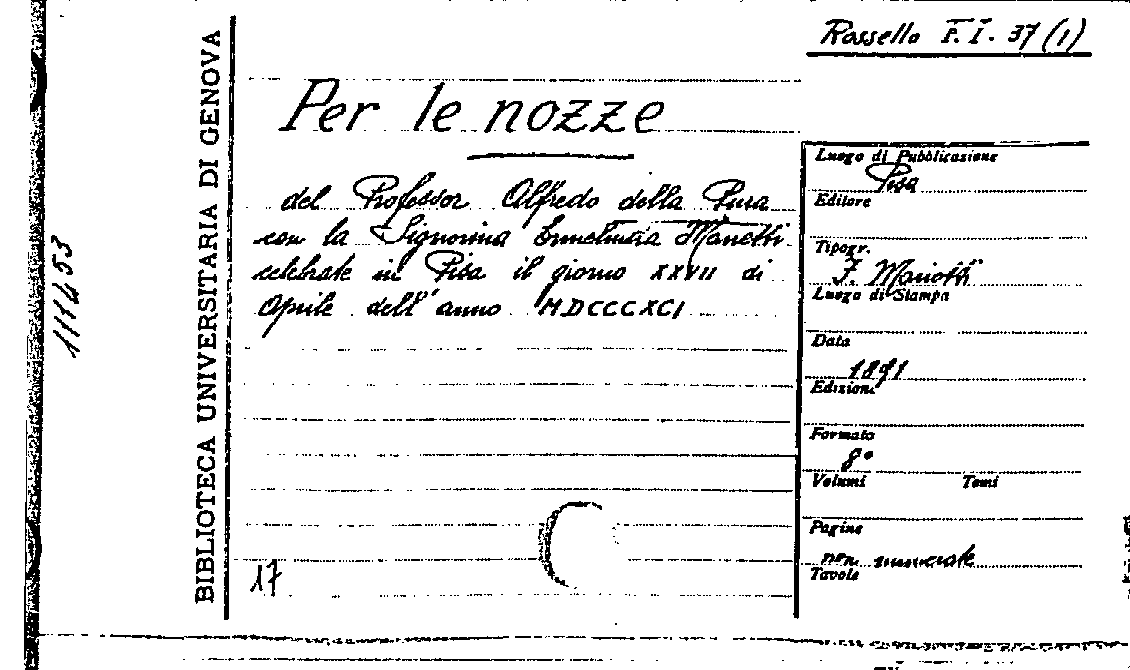 Rossello F. I. 37 (1)
111453
BIBLIOTECA UNIVERSITARIA DI GENOVA
Per le nozze
del Professor Alfredo della Pura
con la Signorina Manetti
celebrate in Pisa il giorno XXVII di
Aprile dell'anno MDCCCXCI
17
Luogo di Pubblicazione
Pisa
Editore
Tipogr.
F. Mariotti
Luogo di Stampa
Data
1891
Edizione
Formato
8°
Volumi Tomi
Pagine
non numerate
Tavole